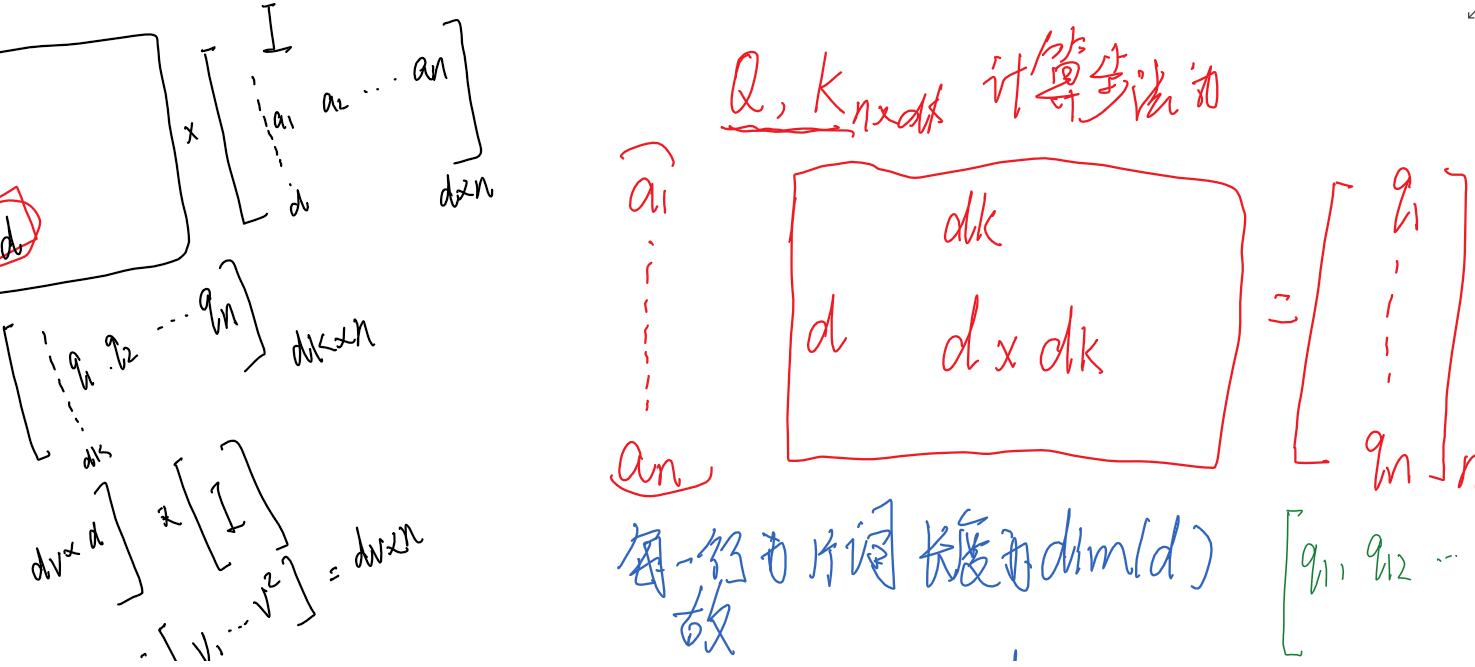 I
a1 a2 ... an
x
d
d
d×n
q1 . q2 ... qn
dk
dk×n
dv×d
×
I
= dv×n
V1 ... V2
Q, K n×dk 计算步法为
a1
an
dk
d
d x dk
=
q1
qn
每一行为 片词 长度为dim(d)
故
q1, q12 ...